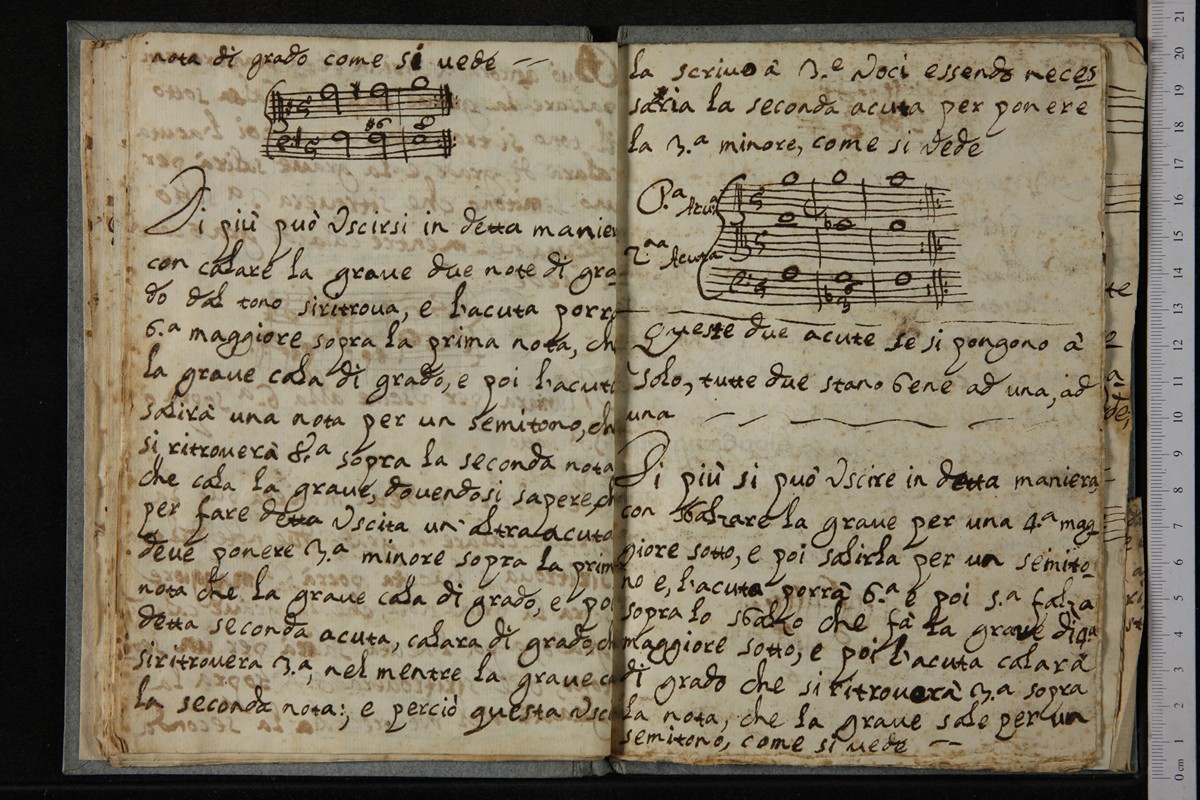 nota di grado come si vede
#6 8
Di più può Uscirsi in detta manier
con calare la grave due note di gra-
do dal tono siritrova, e l'acuta porrà
6.a maggiore sopra la prima nota, ch
la grave cala di grado, e poi l'acuta
salirà una nota per un semitono, ch
si ritroverà 8.a sopra la seconda nota
che cala la grave, dovendosi sapere, ch
per fare detta Uscita un altra acuta
deve ponere 3.a minore sopra la prim
nota che la grave cala di grado, e poi
detta seconda acuta, calara di grado, ch
siritrovera 3.a, nel mentre la grave ca
la seconda nota:, e perciò questa Usci
la scrivo à 3.e Voci essendo neces
saria la seconda acuta per ponere
la 3.a minore, come si Vede
P.a Acuta
2.aa Acuta
b 6
3
Queste due acute se si pongono à
solo, tutte due stano bene ad una, ad
una
Di più si può Uscire in detta maniera,
con sbalzare la grave per una 4.a mag
giore sotto, e poi salirla per un semito-
no e, l'acuta porrà 6.a e poi 5.a falza
sopra lo sbalzo che fà la grave di 4.a
maggiore sotto, e poi l'acuta calarà
di grado che si ritroverà 3.a sopra
la nota, che la grave sale per un
semitono, come si vede